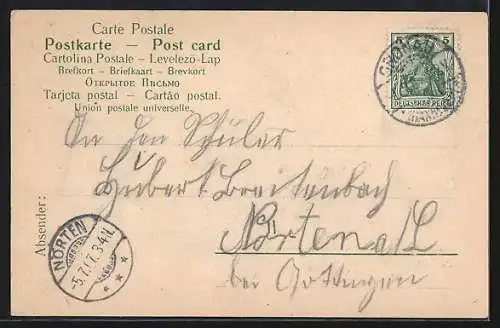 Carte Postale
Postkarte — Post card
Cartolina Postale – Levelező-Lap
Brefkort – Briefkaart – Brevkort
Открытое Письмо
Tarjeta postal – Cartão postal.
Union postale universelle.
5 5
DEUTSCHES REICH
GRONAU
An den Schüler
Hubert Breitenbach
Nörten a/L
bei Göttingen
Absender:
NÖRTEN
-5.7.07. 3-4N.